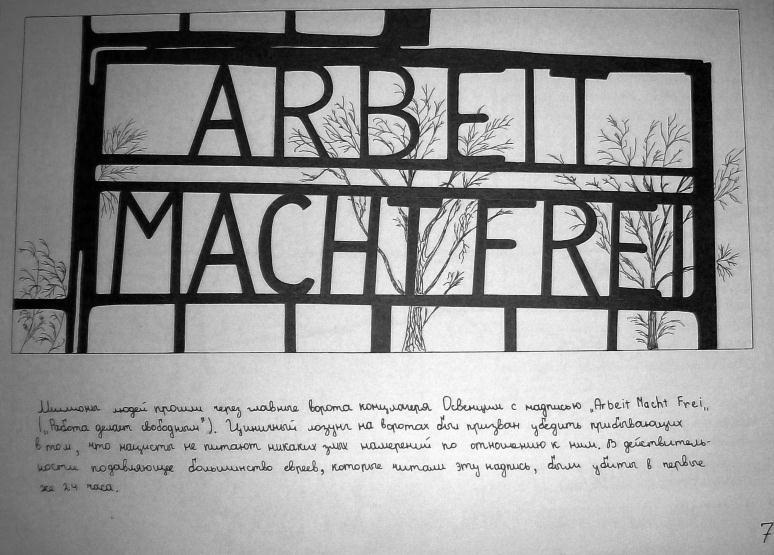 ARBEIT
MACHT FREI
Миллионы людей прошли через главные ворота концлагеря Освенцим с надписью „Arbeit Macht Frei„
(„Работа делает свободным"). Циничный лозунг на воротах был призван убедить прибывающих
в том, что нацисты не питают никаких злых намерений по отношению к ним. В действитель-
ности подавляющее большинство евреев, которые читали эту надпись, были убиты в первые
же 24 часа.
7